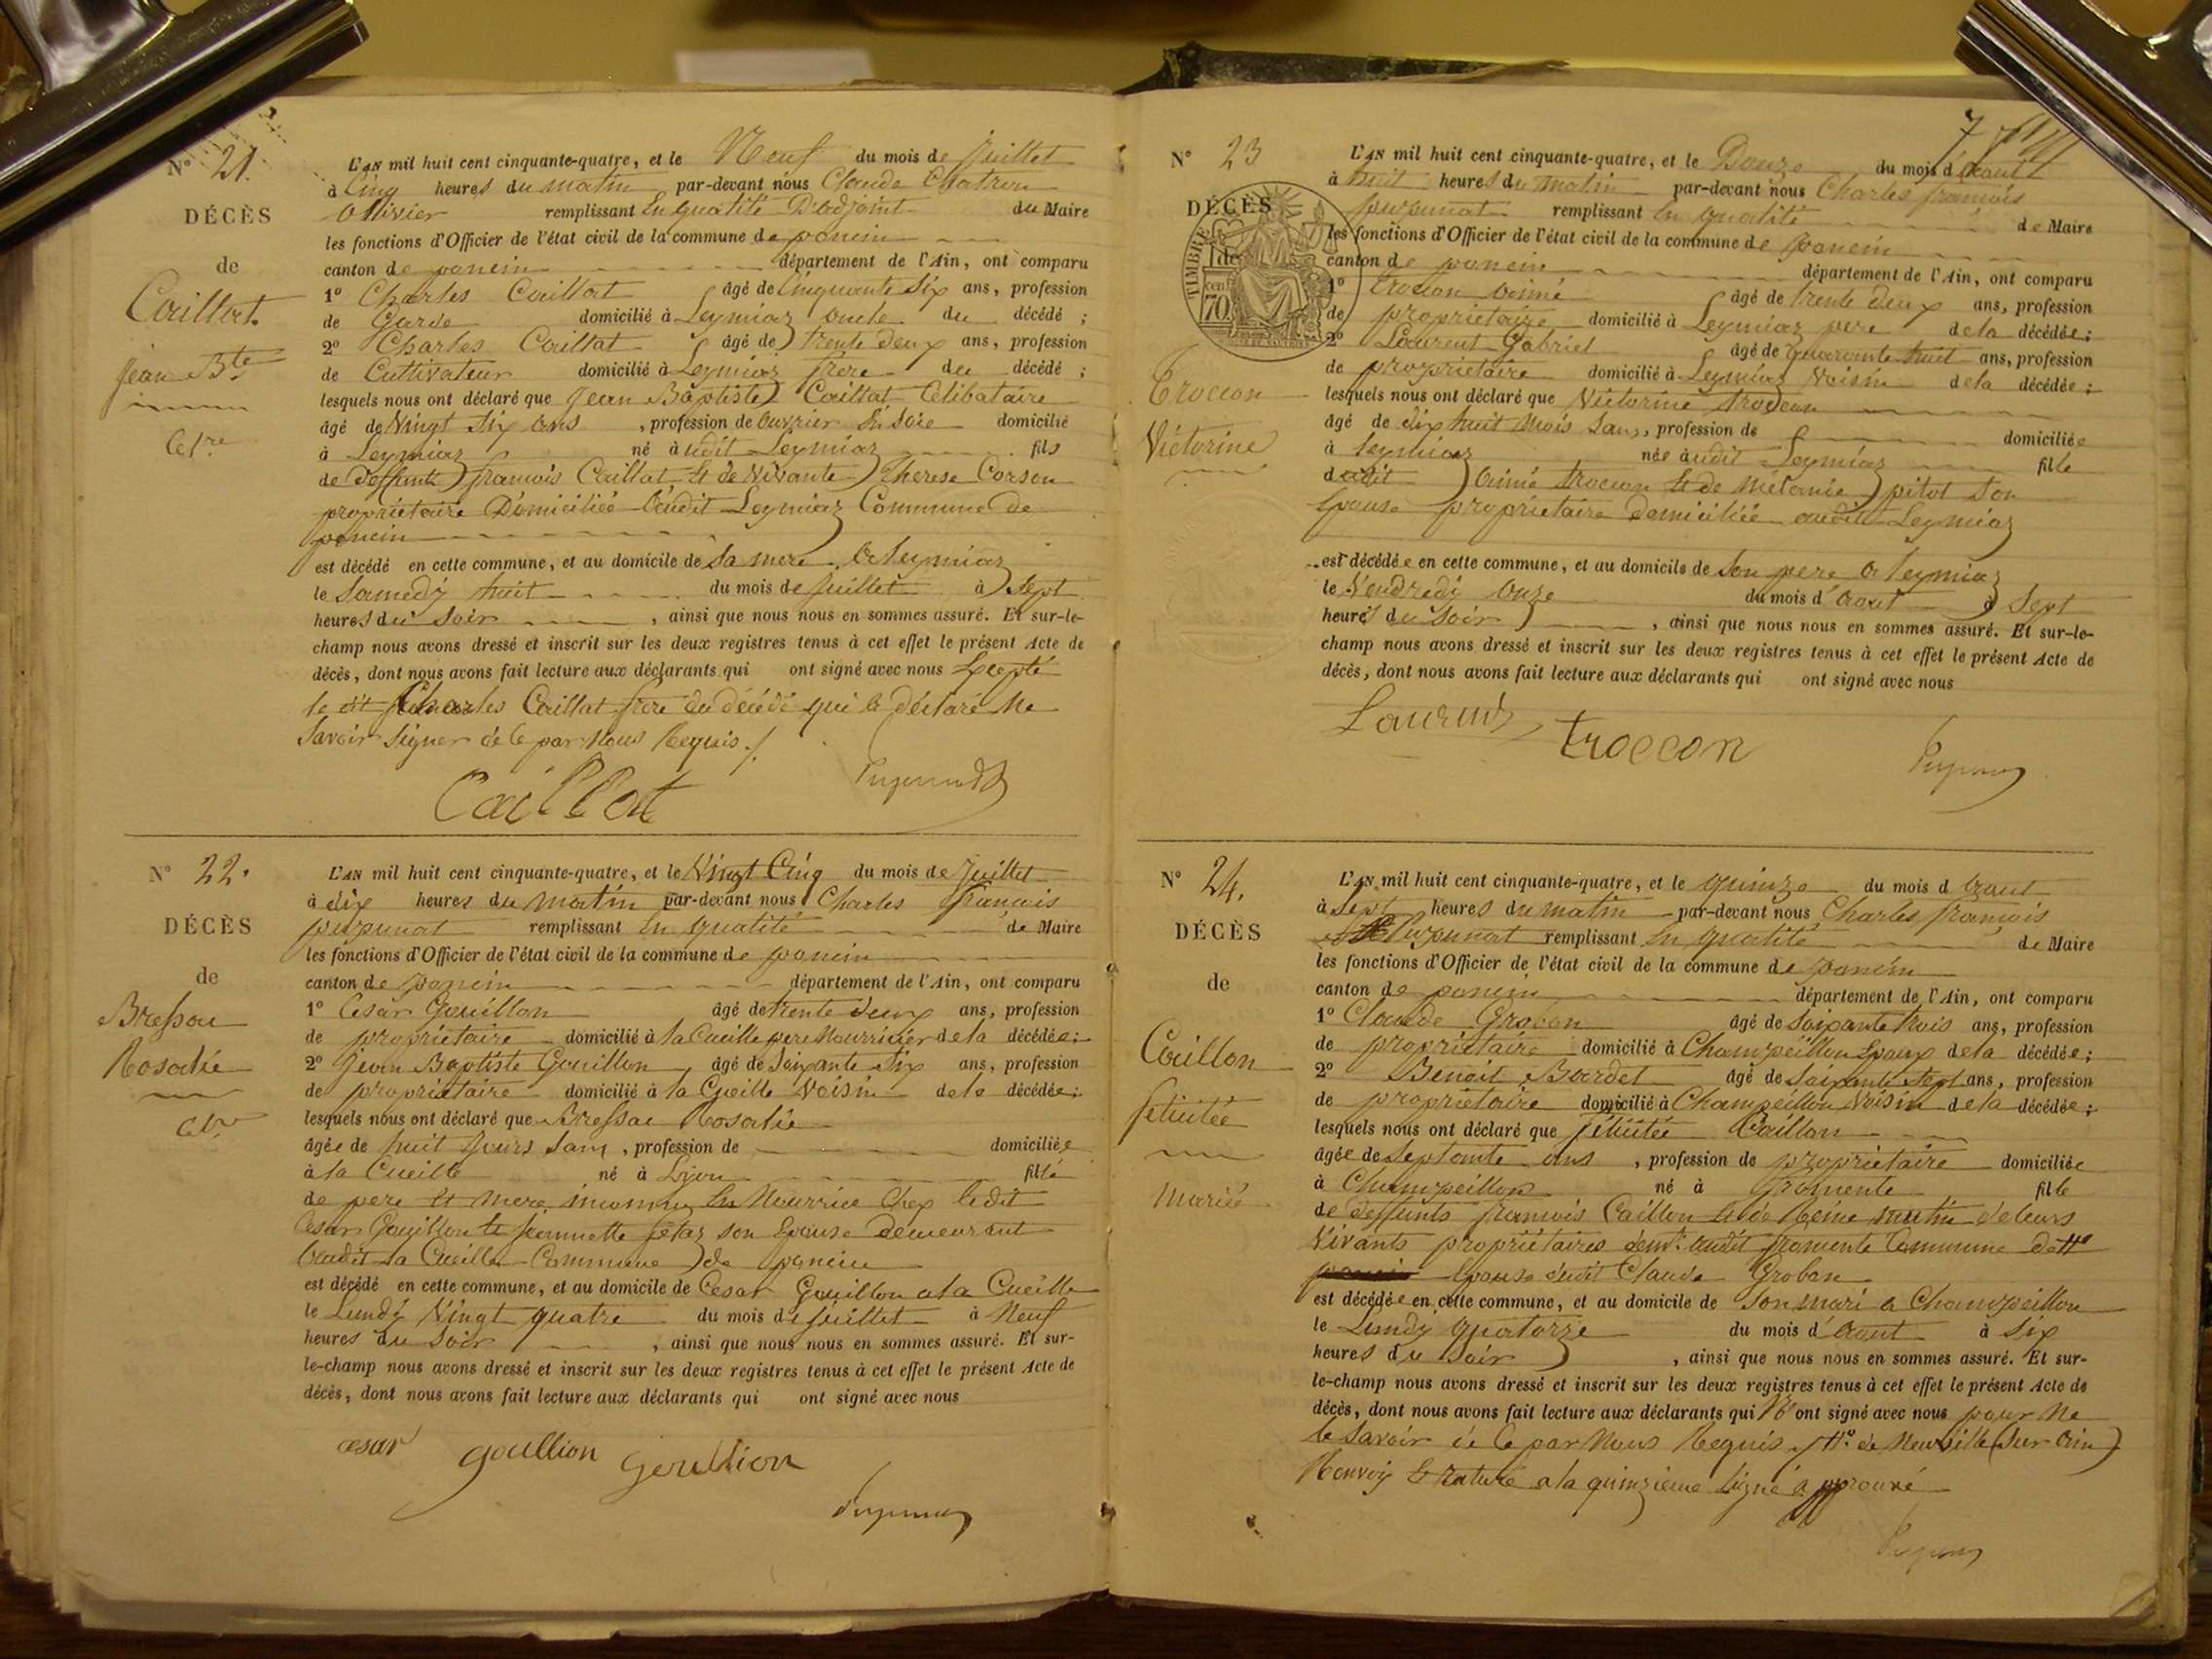 N° 21.
DÉCÈS
de
Caillat
Jean Bte
Cel.re
L'AN mil huit cent cinquante-quatre, et le Neuf du mois de juillet
à Cinq heures du matin par-devant nous Claude Chatron
Ollivier remplissant En qualité D'adjoint du Maire
les fonctions d'Officier de l'état civil de la commune de poncin
canton de poncin département de l'Ain, ont comparu
1° Charles Caillat âgé de Cinquante Six ans, profession
de Garde domicilié à Leymiaz oncle du décédé ;
2° Charles Caillat âgé de trente deux ans, profession
de Cultivateur domicilié à Leymiaz frere du décédé ;
lesquels nous ont déclaré que Jean Baptiste Caillat Célibataire
âgé de Vingt Six ans , profession de ouvrier En Soie domicilié
à Leymiaz né audit Leymiaz fils
de deffunt francois Caillat Et de Vivante Therese Corson
propriétaire Domiciliée audit Leymiaz Commune de
poncin
est décédé en cette commune, et au domicile de Sa mere a Leymiaz
le Samedy huit du mois de juillet à Sept
heures du Soir , ainsi que nous nous en sommes assuré. Et sur-le-
champ nous avons dressé et inscrit sur les deux registres tenus à cet effet le présent Acte de
décès, dont nous avons fait lecture aux déclarants qui ont signé avec nous Excepté
le dit Charles Caillat frere du décédé qui a déclaré Ne
Savoir Signer de ce par Nous Requis ./.
Caillat
N° 22.
DÉCÈS
de
Bressan
Rosalie
L'AN mil huit cent cinquante-quatre, et le Vingt Cinq du mois de juillet
à dix heures du matin par-devant nous Charles francois
pupunat remplissant En qualité de Maire
les fonctions d'Officier de l'état civil de la commune de poncin
canton de poncin département de l'Ain, ont comparu
1° Cesar Gouillon âgé de trente deux ans, profession
de propriétaire domicilié à la Cueille pere Nourricier de la décédée ;
2° Jean Baptiste Gouillon âgé de Soixante Six ans, profession
de propriétaire domicilié à la Cueille Voisin de la décédée ;
lesquels nous ont déclaré que Bressan Rosalie
âgée de huit jours Sans , profession de domiciliée
à la Cueille né à Lyon fille
de pere et mere inconnus En Nourrice Chez ledit
Cesar Gouillon Et Jeannette son Epouse demeurant
audit la Cueille Commune de poncin
est décédé en cette commune, et au domicile de Cesar Gouillon a la Cueille
le Lundy Vingt quatre du mois de juillet à Neuf
heures du Soir , ainsi que nous nous en sommes assuré. Et sur-
le-champ nous avons dressé et inscrit sur les deux registres tenus à cet effet le présent Acte de
décès, dont nous avons fait lecture aux déclarants qui ont signé avec nous
cesar goullion goullion
7
N° 23
DÉCÈS
TIMBRE
1 de
cent
70
Troccon
Victorine
L'AN mil huit cent cinquante-quatre, et le Douze du mois d'aout
à huit heures du matin par-devant nous Charles francois
pupunat remplissant En qualité de Maire
les fonctions d'Officier de l'état civil de la commune de poncin
canton de poncin département de l'Ain, ont comparu
1° Troccon Aimé âgé de trente deux ans, profession
de propriétaire domicilié à Leymiaz pere de la décédée ;
2° Laurent Gabriel âgé de quarante huit ans, profession
de propriétaire domicilié à Leymiaz Voisin de la décédée ;
lesquels nous ont déclaré que Victorine Trocon
âgé de dix huit mois Sans, profession de domiciliée
à Leymiaz née audit Leymiaz fille
dudit Aimé Trocion Et de Mélanie pitot Son
Epouse propriétaire domiciliée audit Leymiaz
est décédée en cette commune, et au domicile de Son pere a Leymiaz
le Vendredy Onze du mois d'aout à Sept
heures du Soir , ainsi que nous nous en sommes assuré. Et sur-le-
champ nous avons dressé et inscrit sur les deux registres tenus à cet effet le présent Acte de
décès, dont nous avons fait lecture aux déclarants qui ont signé avec nous
Laurent troccon
N° 24.
DÉCÈS
de
Caillon
félicitée
Mariée
L'AN mil huit cent cinquante-quatre, et le quinze du mois d aout
à Sept heures du matin par-devant nous Charles francois
Pupunat remplissant En qualité de Maire
les fonctions d'Officier de l'état civil de la commune de poncin
canton de poncin département de l'Ain, ont comparu
1° Claude Groban âgé de Soixante trois ans, profession
de propriétaire domicilié à Champeillon Epoux de la décédée ;
2° Benoit Bardet âgé de Soixante Sept ans, profession
de propriétaire domicilié à Champeillon Voisin de la décédée ;
lesquels nous ont déclaré que félicitée Caillon
âgée de Septante ans , profession de propriétaire domiciliée
à Champeillon né à fromente fille
de deffunts francois Caillon Et de Reine de leurs
Vivants propriétaires audit fromente Commune de
Epouse dudit Claude Groban
est décédée en cette commune, et au domicile de Son mari a Champeillon
le Lundy quatorze du mois d'aout à Six
heures du Soir , ainsi que nous nous en sommes assuré. Et sur-
le-champ nous avons dressé et inscrit sur les deux registres tenus à cet effet le présent Acte de
décès, dont nous avons fait lecture aux déclarants qui N'ont signé avec nous pour Ne
le Savoir de ce par Nous Requis de Neuville (Sur Ain)
Renvoi Et rature a la quinzieme Ligne approuvé